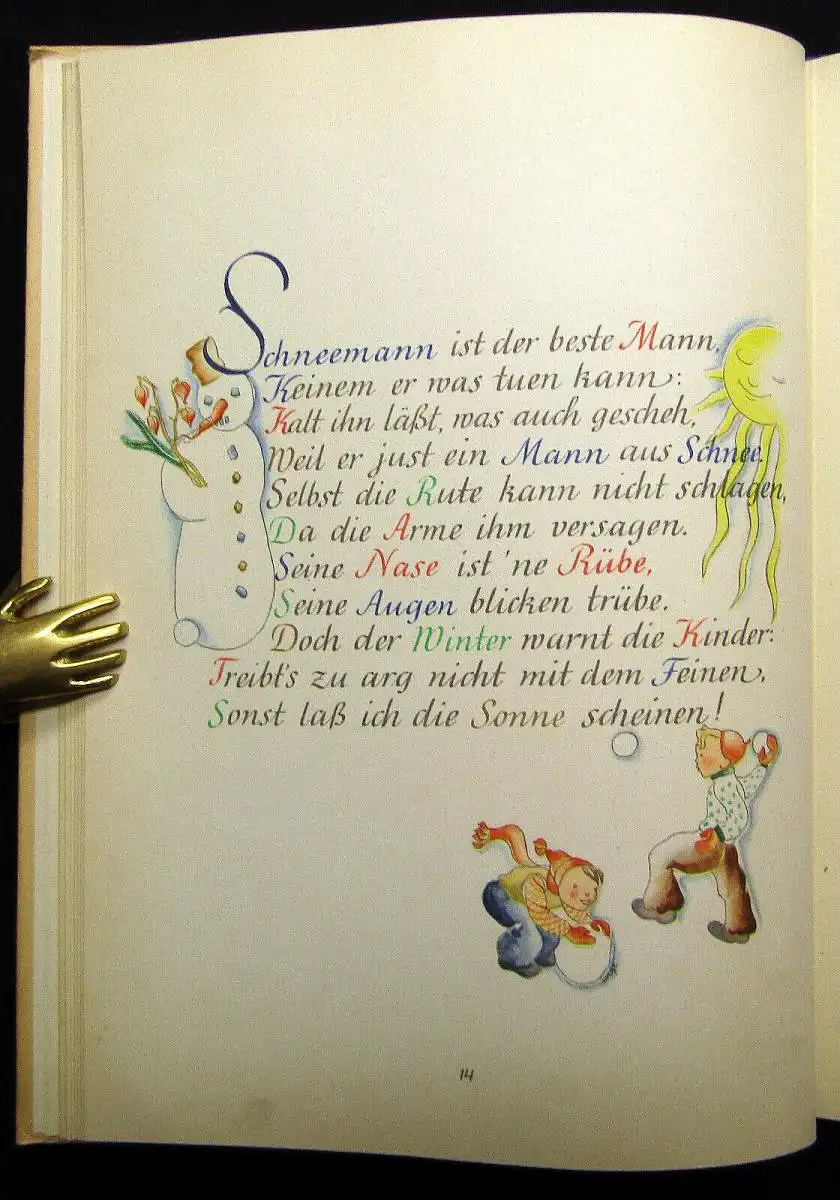 Schneemann ist der beste Mann,
Keinem er was tuen kann:
Kalt ihn läßt, was auch gescheh,
Weil er just ein Mann aus Schnee.
Selbst die Rute kann nicht schlagen,
Da die Arme ihm versagen.
Seine Nase ist 'ne Rübe,
Seine Augen blicken trübe.
Doch der Winter warnt die Kinder:
Treibt's zu arg nicht mit dem Feinen,
Sonst laß ich die Sonne scheinen!
14